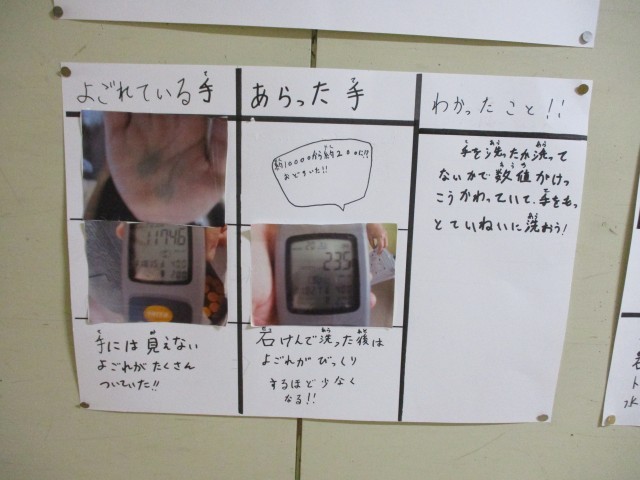 よごれている手
手には見えない
よごれがたくさん
ついていた!!
11746
あらった手
約10000から約200に!!
おどろいた!!
235
石けんで洗った後は
よごれがびっくり
するほど少なく
なる!!
わかったこと!!
手を洗ったか洗って
ないかで数値がけっ
こうかわっていて、手をもっ
とていねいに洗おう!
水